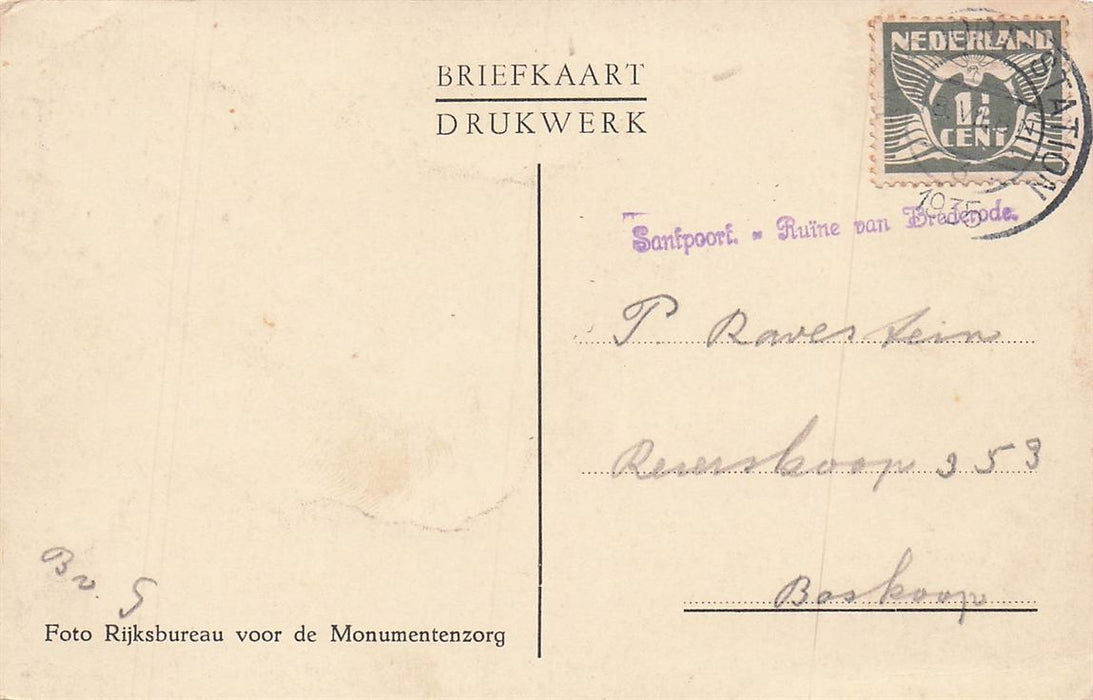 BRIEFKAART
DRUKWERK
NEDERLAND
1½
CENT
STATION
1935
Santpoort. - Ruïne van Brederode.
P Ravestein
Reierskoop 353
Boskoop
Bv. G
Foto Rijksbureau voor de Monumentenzorg